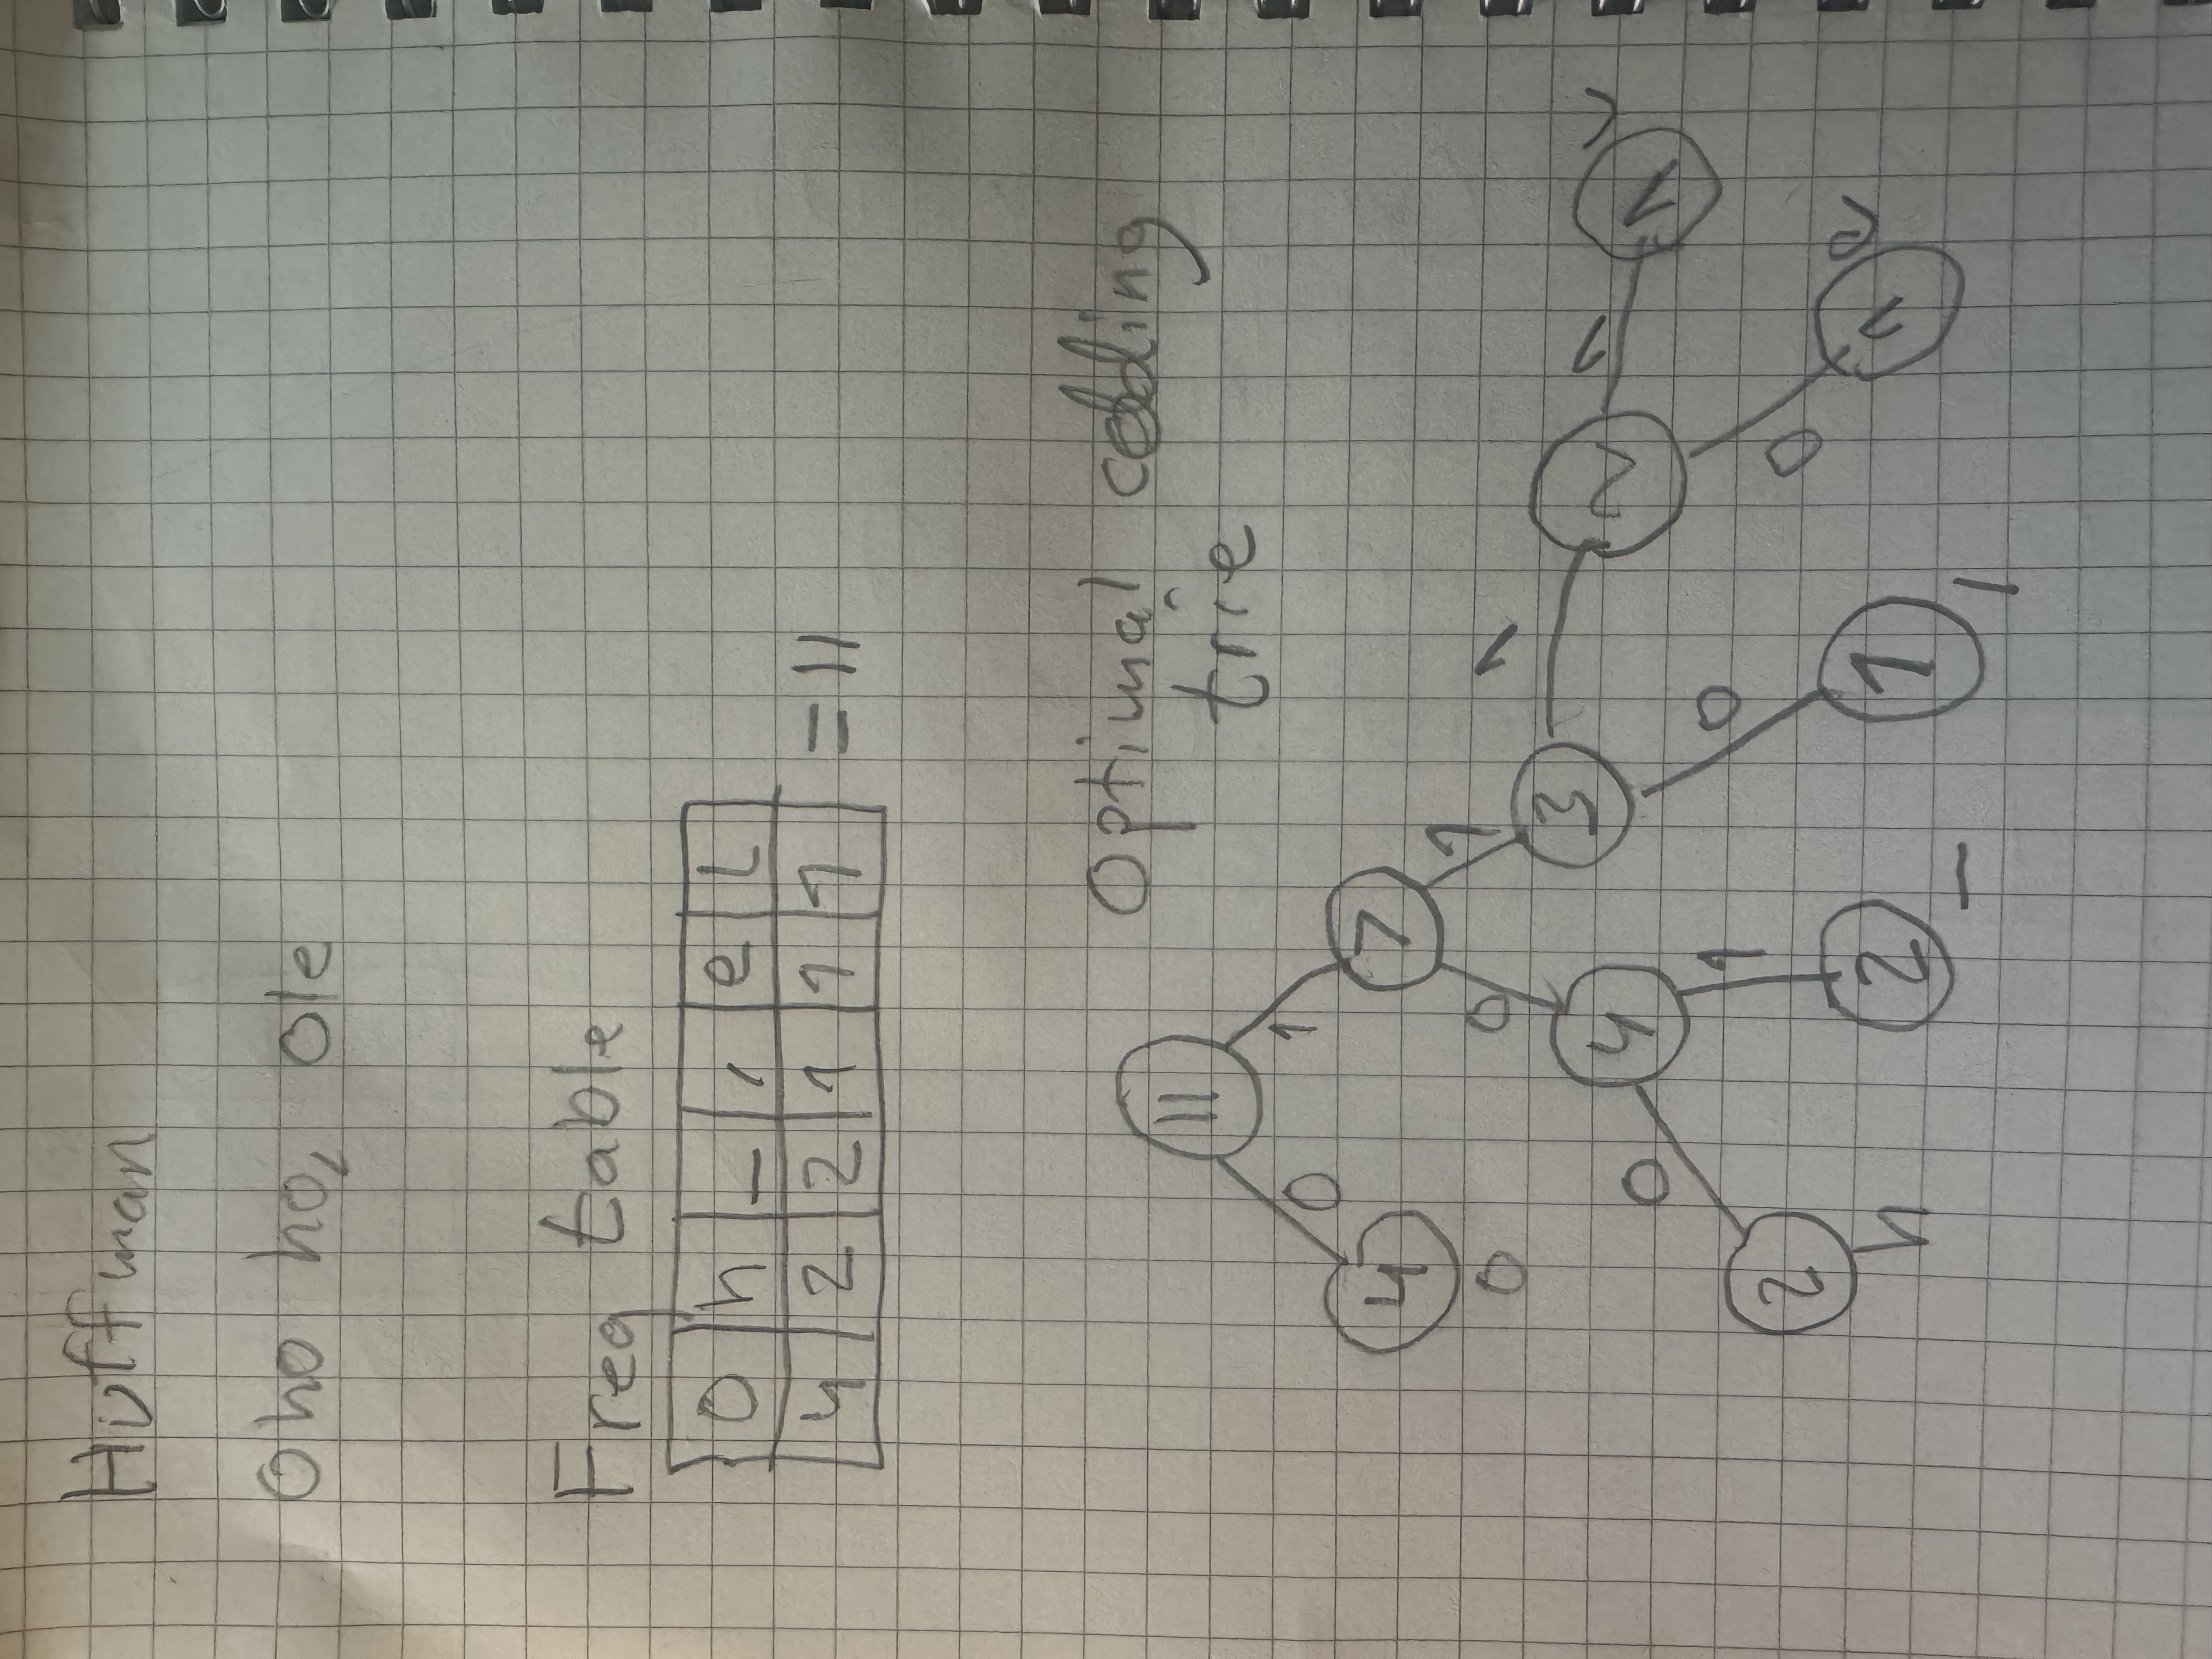 Huffman
Oho ho, ole
Freq table
O h _ , e l
4 2 2 1 1 1 = 11
Optimal codding
trie
11
0 1
4 7
0 0 1 1
3
4 2 1 1 L
0 1 0 0
2 2 1 1 e
h _ ,